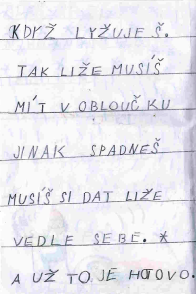 KDYŽ LYŽUJE Š.
TAK LIŽE MUSÍŠ
MÍT V OBLOUČKU
JINAK SPADNEŠ
MUSÍŠ SI DAT LIŽE
VEDLE SEBE. *
A UŽ TO JE HOTOVO.